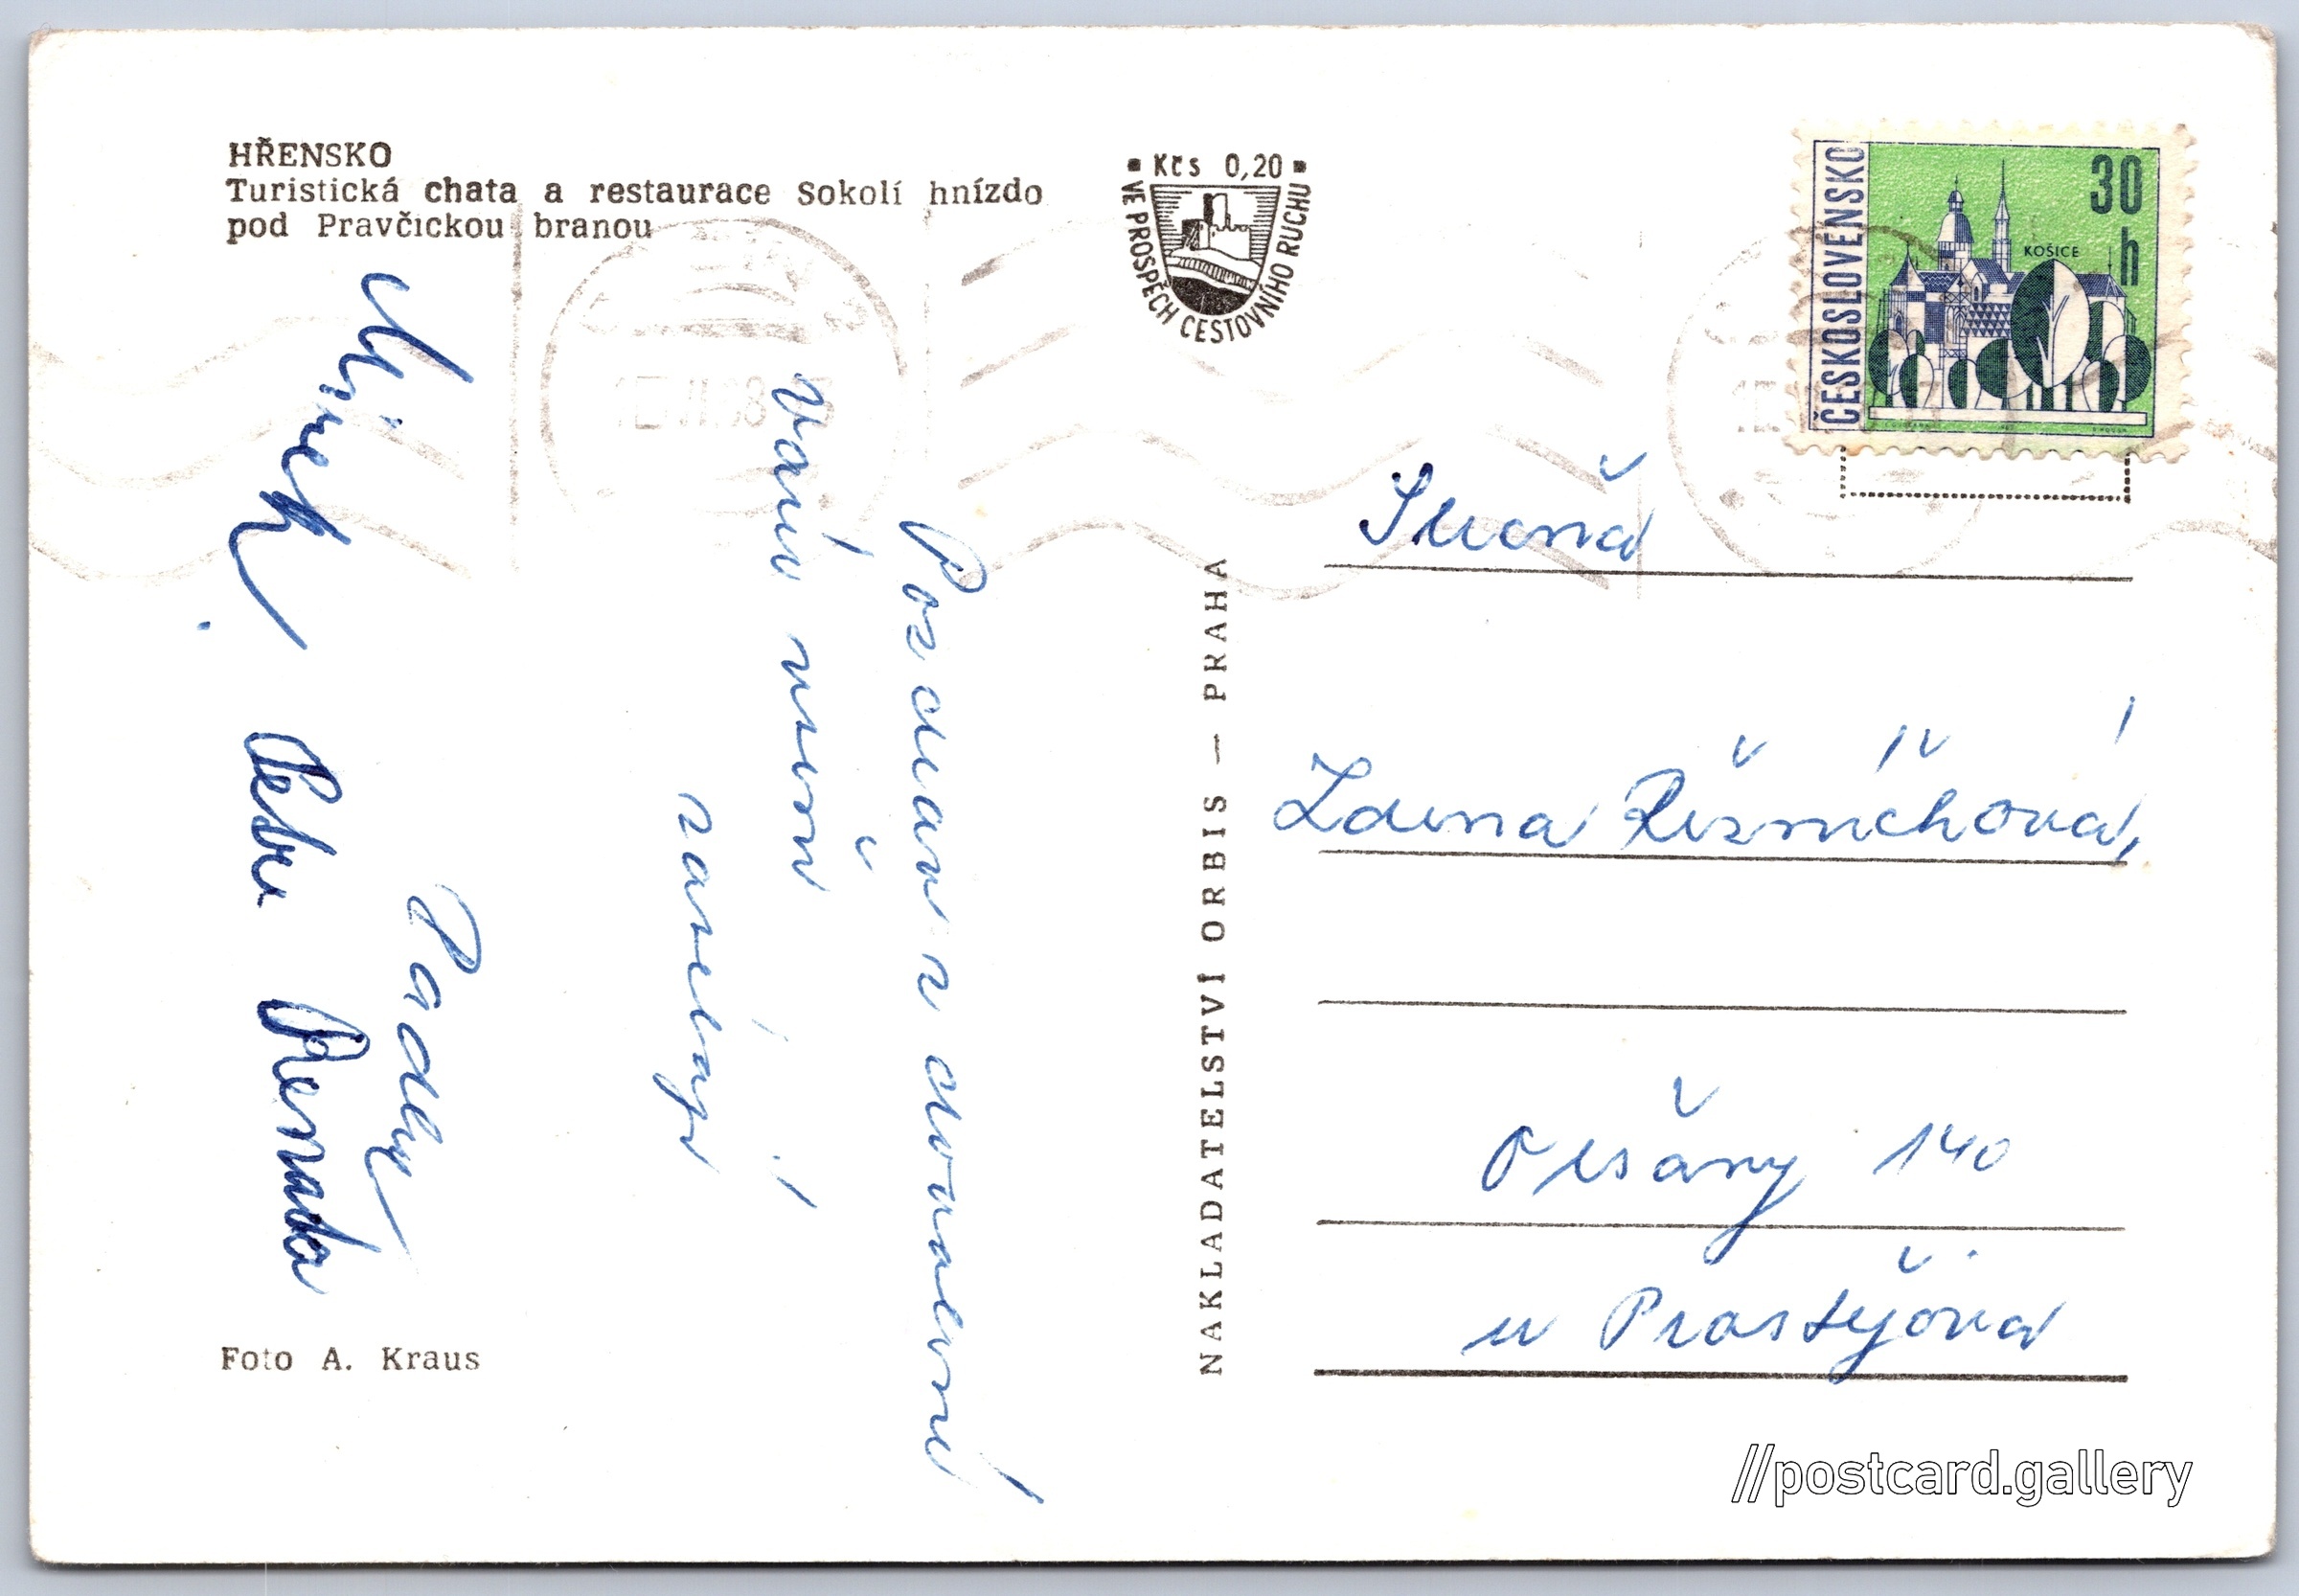 HŘENSKO
Turistická chata a restaurace Sokolí hnízdo
pod Pravčickou branou
Kčs 0,20
VE PROSPĚCH CESTOVNÍHO RUCHU
ČESKOSLOVENSKO
30
h
KOŠICE
Pozdrav z dovolené
Vám všem
zasílají
Radek
Mirek
Renata
Foto A. Kraus
NAKLADATELSTVÍ ORBIS — PRAHA
Zdena Řezníčková,
Olšany 140
u Prostějova
//postcard.gallery